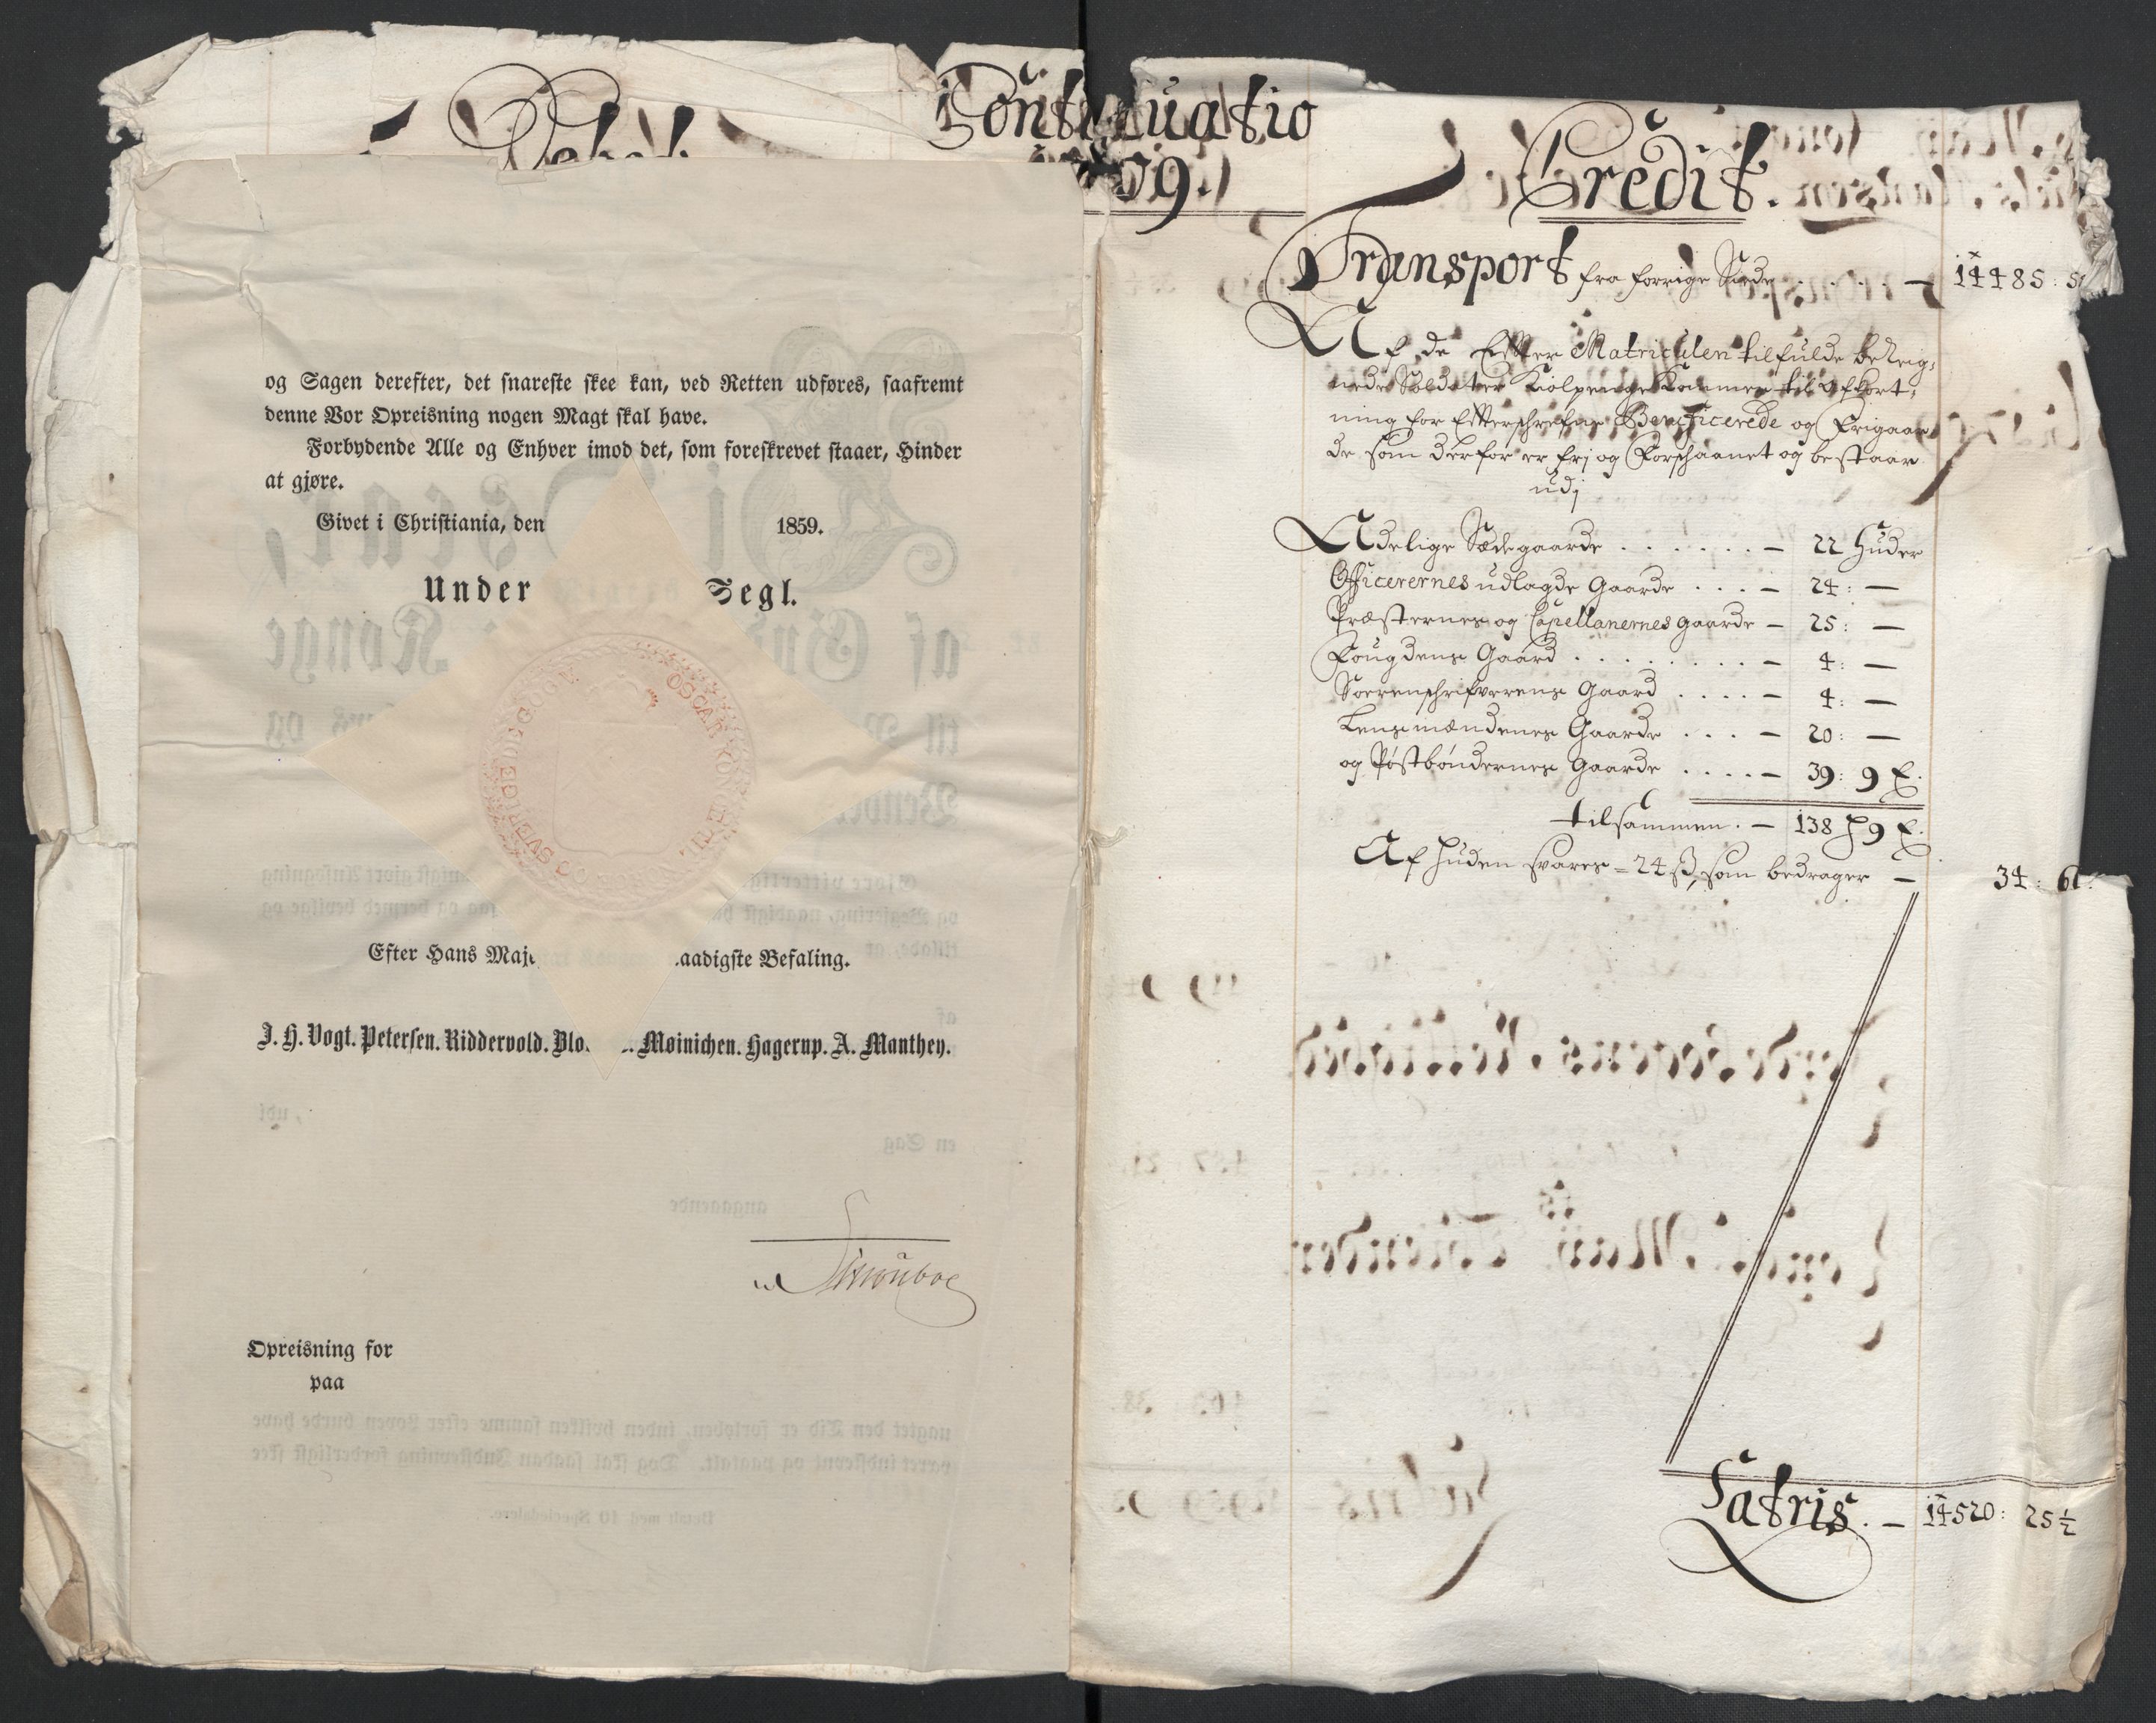 Debet
Continuatio
09.
og Sagen derefter, det snareste skee kan, ved Retten udføres, saafremt
denne Vor Opreisning nogen Magt skal have.
Forbydende Alle og Enhver imod det, som foreskrevet staaer, Hinder
at gjøre.
Givet i Christiania, den 1859.
Under Segl.
OSCAR
SVERIGE
Efter Hans Maje aadigste Befaling.
J. H. Vogt. Petersen. Riddervold. Blo Møinichen. Hagerup. A. Manthey.
Opreisning for
paa
Credit.
Transport fra forrige Side — 14485: 5
Af de Efter Matriculen tilfulde bereig-
nede Soldater Kiolpenge Kommer til Afkort-
ning for Efterschrefne Beneficerede og Frigaar-
de, som derfor er frj og Forschaanet og bestaar
udj
Adelige Sædegaarde . . . . . . — 22 Huder
Officerernes udlagde Gaarde . . . — 24: —
Præsternes og Capellanernes gaarde — 25: —
Fougdens Gaard . . . . . . . . — 4: —
Sorenschrifverens Gaard . . . . — 4: —
Lensmændenes Gaarde . . . — 20: —
og Postbøndernes Gaarde . . . . — 39: 9 ƚ.
tilsammen. — 138 H 9 ƚ.
Af Huden svares = 24 ß, som bedrager — 34: 61:
Latris. — 14520: 25½